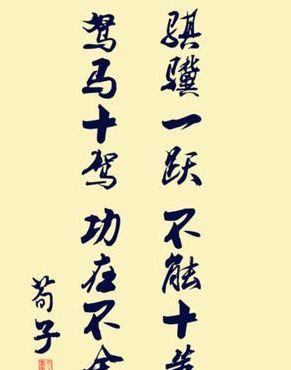 骐骥一跃 不能十
驽马十驾 功在不
荀子